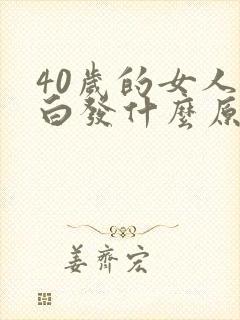 40歲的女人
白發什麼原
姜齊宏